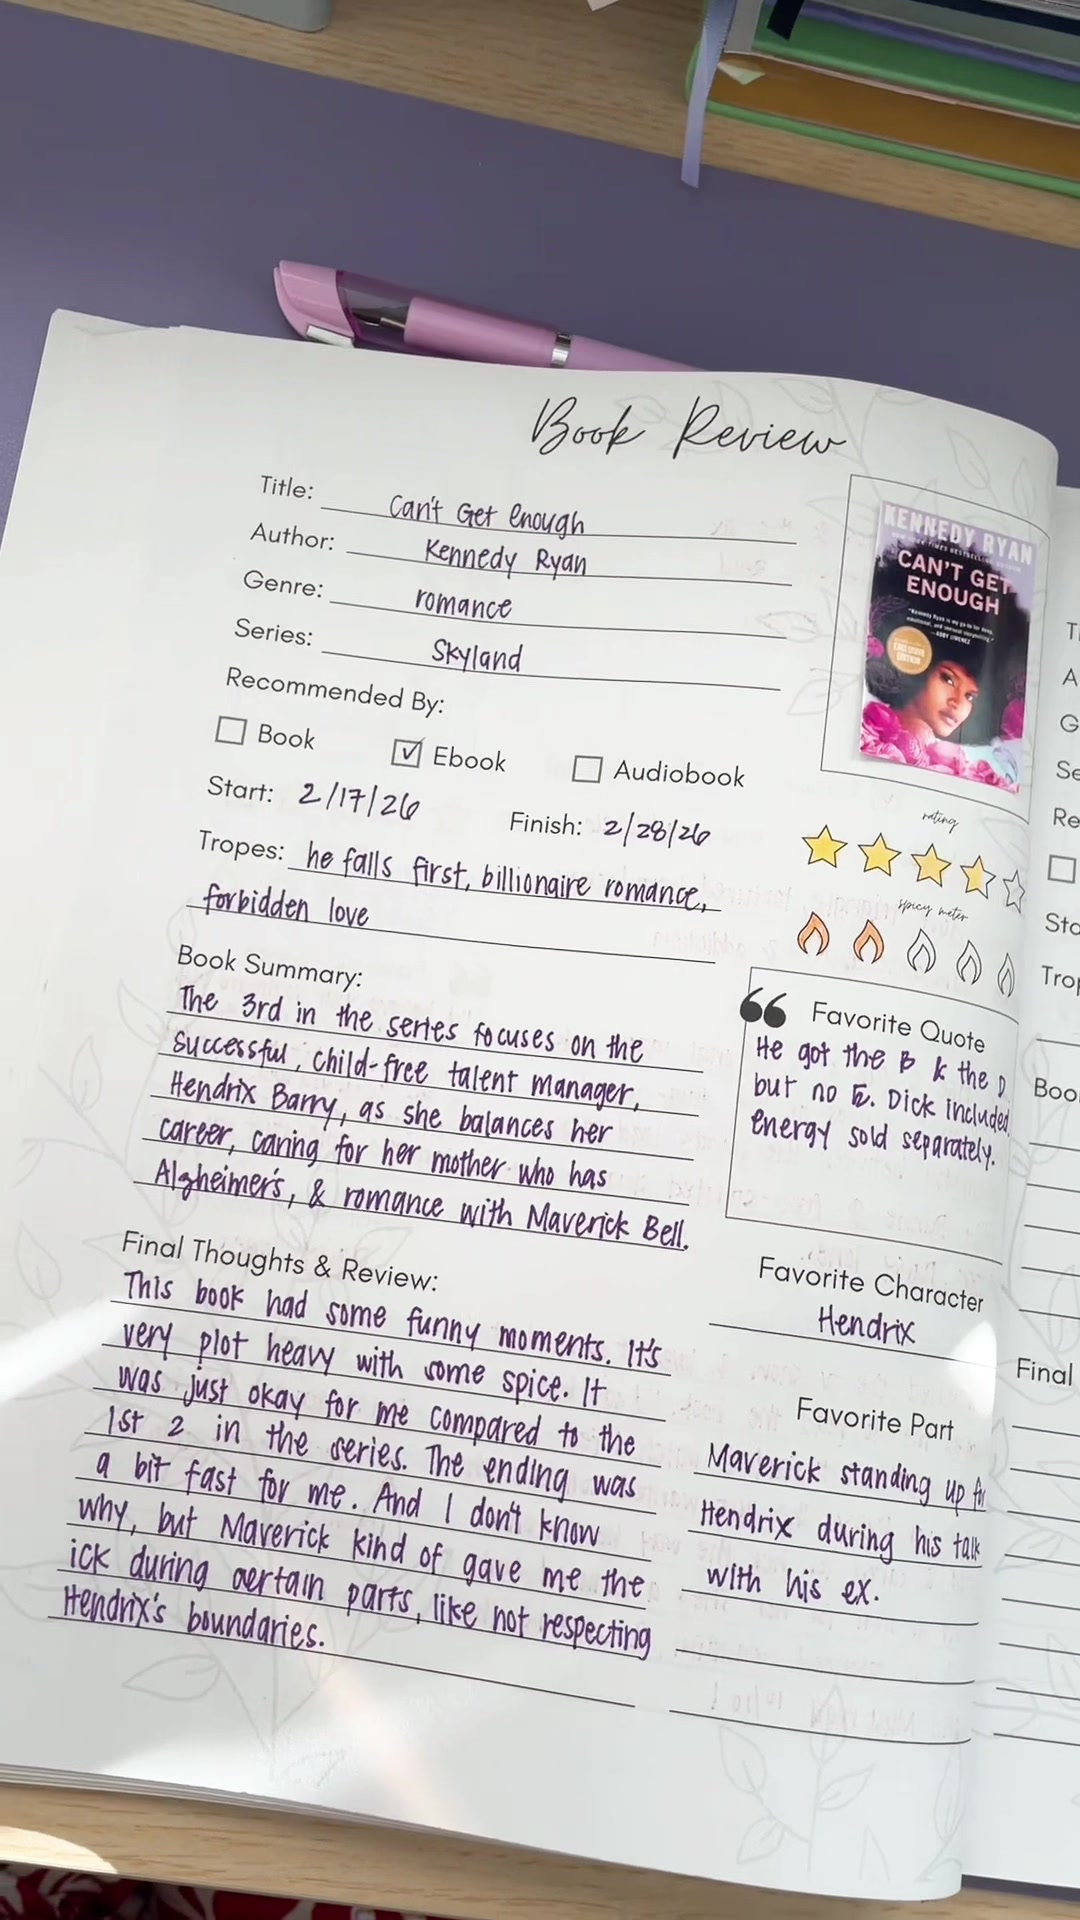 Book Review
Title: Can't Get Enough
Author: Kennedy Ryan
Genre: romance
Series: Skyland
Recommended By:
Book Ebook Audiobook
Start: 2/17/26 Finish: 2/28/26
Tropes: he falls first, billionaire romance,
forbidden love
Book Summary:
The 3rd in the series focuses on the
successful, child-free talent manager,
Hendrix Barry, as she balances her
career, caring for her mother who has
Alzheimer's, & romance with Maverick Bell.
Final Thoughts & Review:
This book had some funny moments. It's
very plot heavy with some spice. It
was just okay for me compared to the
1st 2 in the series. The ending was
a bit fast for me. And I don't know
why, but Maverick kind of gave me the
ick during certain parts, like not respecting
Hendrix's boundaries.
KENNEDY RYAN
NEW YORK TIMES BESTSELLING AUTHOR
CAN'T GET
ENOUGH
"Kennedy Ryan is my go-to for deep,
emotional, and sensual storytelling."
—ABBY JIMENEZ
EXCLUSIVE
EDITION
rating
spicy meter
Favorite Quote
He got the B & the D
but no E. Dick included
energy sold separately.
Favorite Character
Hendrix
Favorite Part
Maverick standing up for
Hendrix during his talk
with his ex.
T
A
G
Se
Re
Sta
Trop
Boo
Final